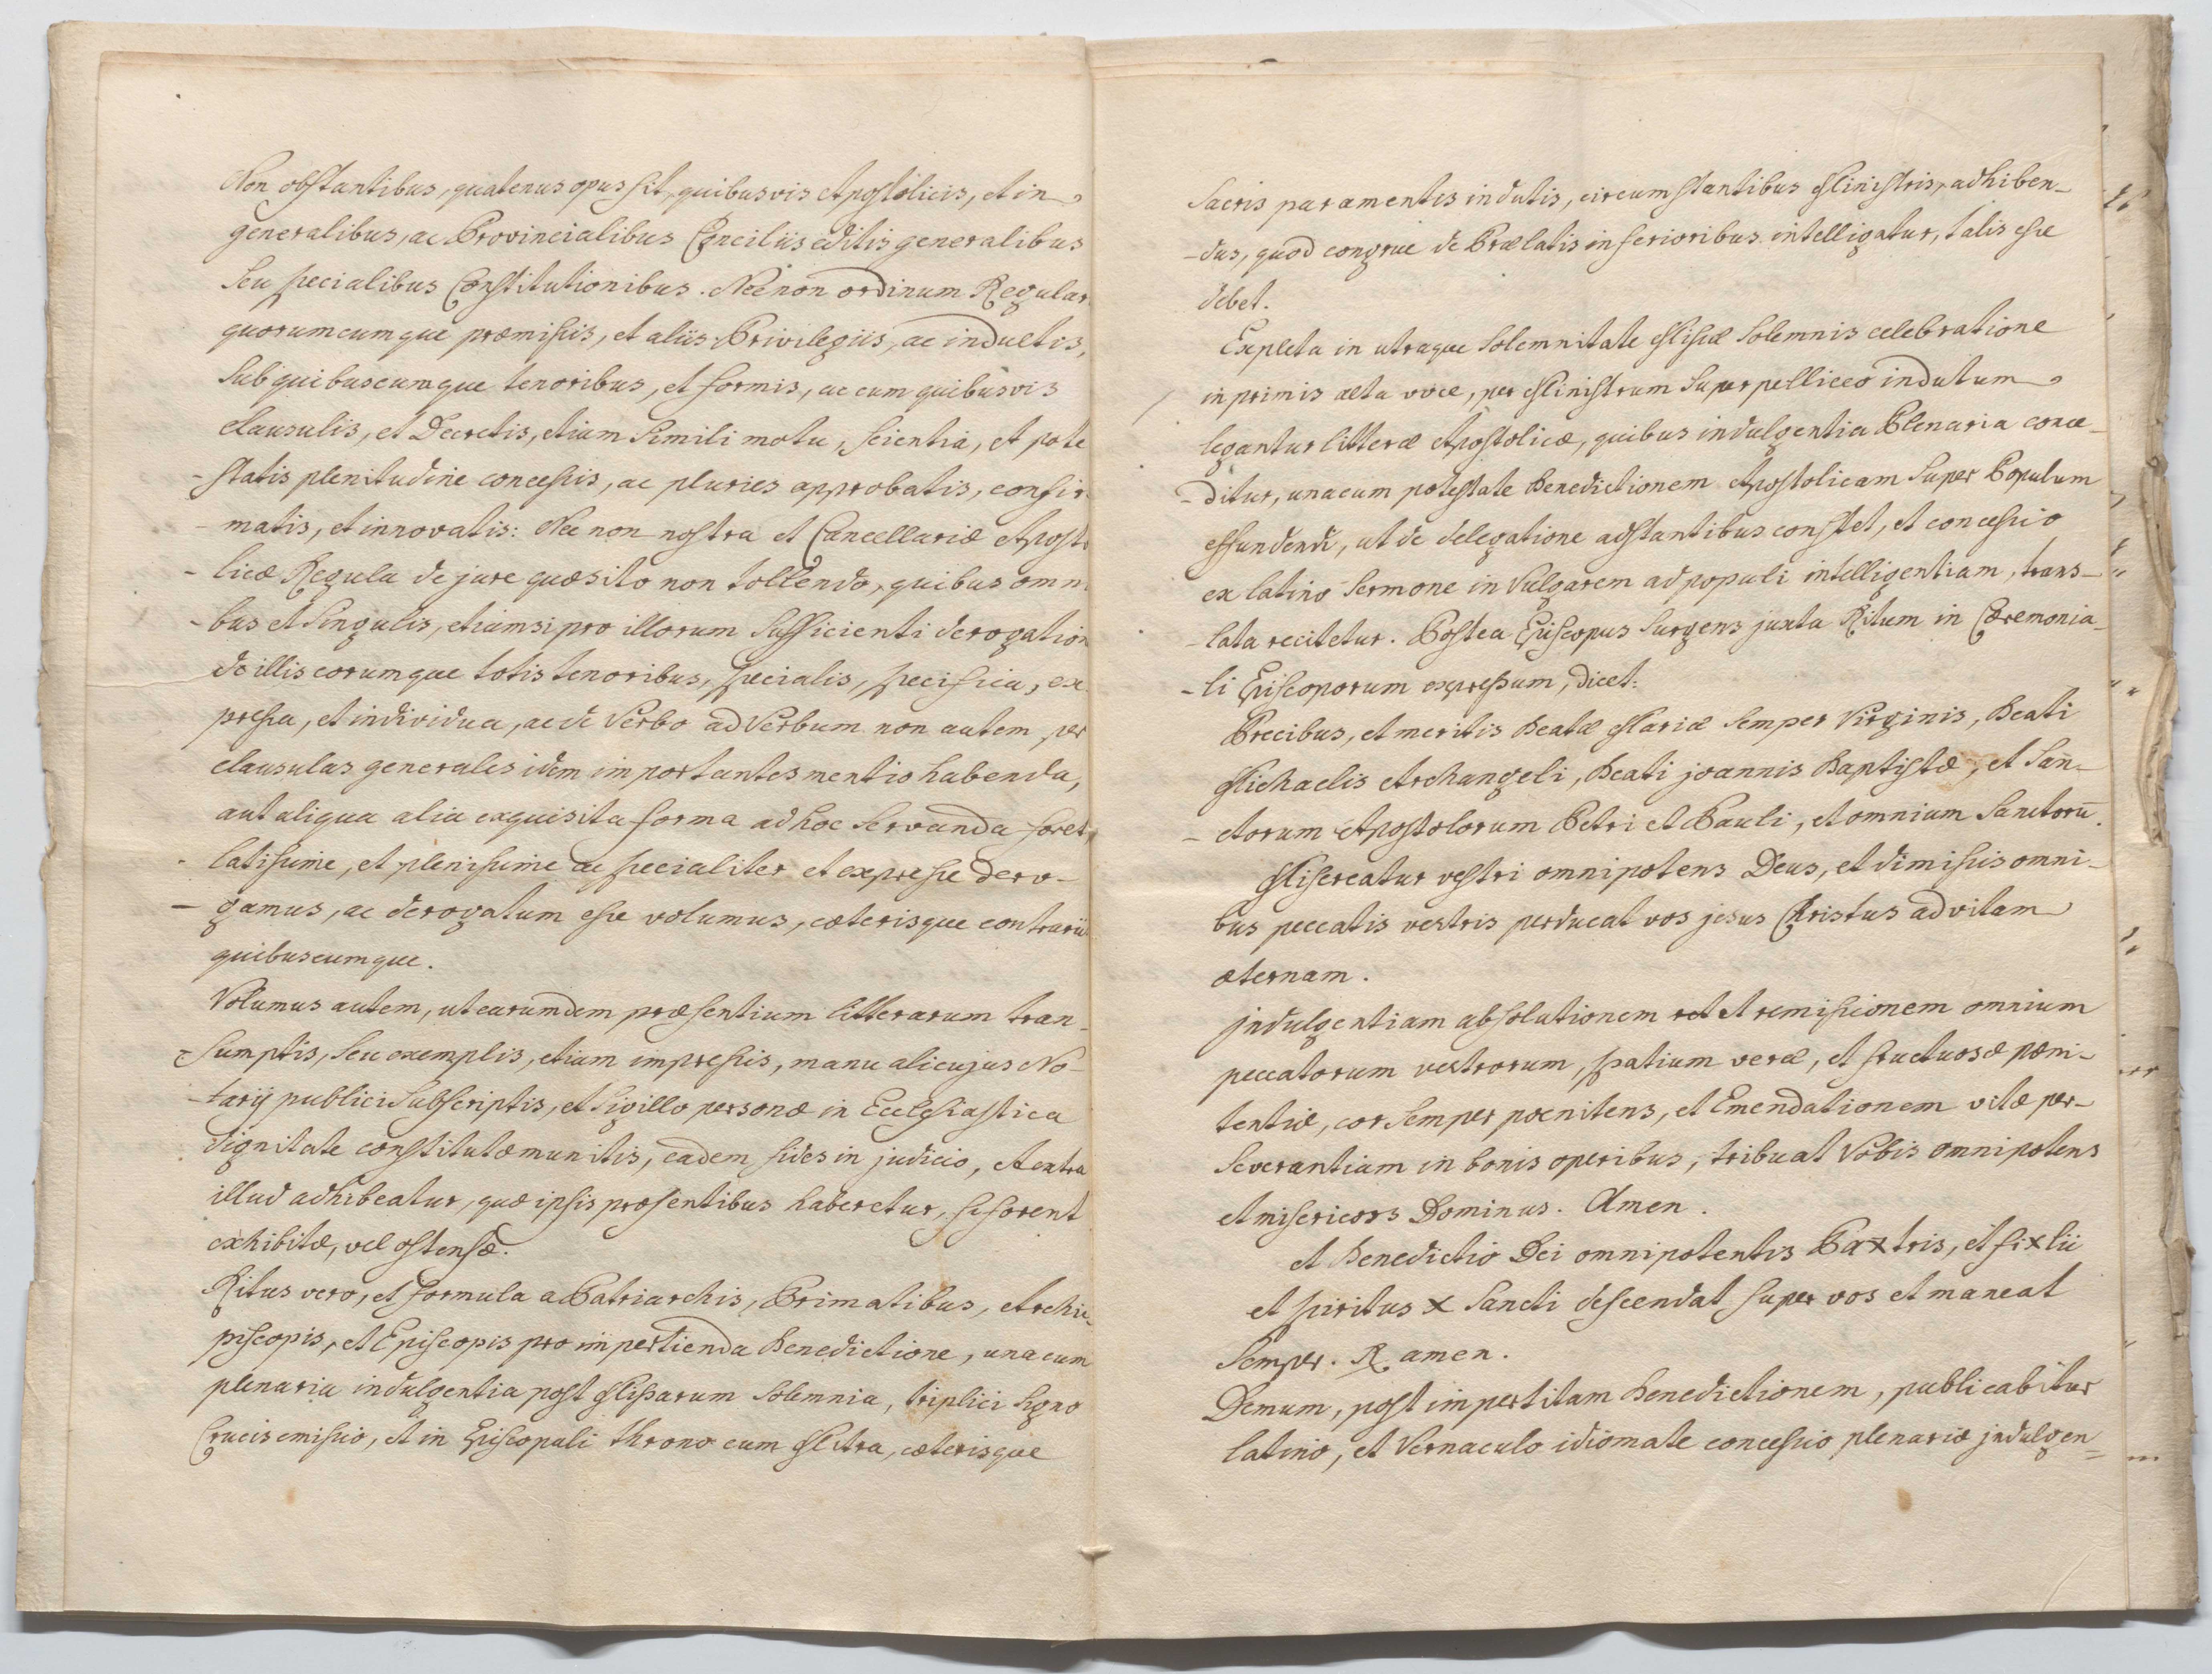 Non obstantibus, quatenus opus sit, quibusvis Apostolicis, et in
generalibus, ac Provincialibus Conciliis editis generalibus
seu specialibus Constitutionibus. Nec non ordinum Regular
quorumcumque præmissis, et aliis Privilegiis, ac indultis,
sub quibuscumque tenoribus, et formis, ac cum quibusvis
clausulis, et Decretis, etiam simili motu, scientia, et pote
-statis plenitudine concessis, ac pluries approbatis, confir
-matis, et innovatis: Nec non nostra et Cancellariæ Aposto
-licæ Regula de jure quæsito non tollendo, quibus omn
-bus et singulis, etiamsi pro illorum sufficienti derogation
de illis eorumque totis tenoribus, specialis, specifica, ex
pressa, et individua, ac de Verbo ad Verbum non autem per
clausulas generales idem importantes mentio habenda,
aut aliqua alia exquisita forma ad hoc servanda foret,
latissime, et plenissime ac specialiter et expresse dero-
-gamus, ac derogatum esse volumus, cæterisque contrarii
quibuscumque.
Volumus autem, ut earumdem præsentium litterarum tran-
sumptis, seu exemplis, etiam impressis, manu alicujus No-
-tarij publici subscriptis, et sigillo personæ in Ecclesiastica
dignitate constitutæ munitis, eadem fides in judicio, et extra
illud adhibeatur, quæ ipsis præsentibus haberetur, si forent
exhibitæ, vel ostensæ.
Ritus vero, et formula a Patriarchis, Primatibus, Archie-
piscopis, et Episcopis pro impertienda Benedictione, una cum
plenaria indulgentia post Missarum solemnia, triplici signo
Crucis emisso, et in Episcopali throno cum Mitra, cæterisque
sacris paramentis indutis, circumstantibus Ministris, adhiben-
-dus, quod congrue de Prælatis inferioribus intelligatur, talis esse
debet.
Expleta in utraque solemnitate Missæ solemnis celebratione
in primis alta voce, per Ministrum superpelliceo indutum
legantur litteræ Apostolicæ, quibus indulgentia Plenaria conce-
-ditur, una cum potestate Benedictionem Apostolicam super Populum
effundendi, ut de delegatione adstantibus constet, et concessio
ex latino sermone in Vulgarem ad populi intelligentiam, trans-
-lata recitetur. Postea Episcopus surgens juxta Ritum in Cæremonia-
-li Episcoporum expressum, dicet:
Precibus, et meritis Beatæ Mariæ semper Virginis, Beati
Michaelis Archangeli, Beati joannis Baptistæ, et San-
-ctorum Apostolorum Petri et Pauli, et omnium Sanctorū.
Misereatur vestri omnipotens Deus, et dimissis omni-
bus peccatis vestris perducat vos jesus Christus ad vitam
æternam.
jndulgentiam absolutionem et remissionem omnium
peccatorum vestrorum, spatium veræ, et fructuosæ pœni-
tentiæ, cor semper pœnitens, et Emendationem vitæ per-
severantiam in bonis operibus, tribuat Vobis omnipotens
et misericors Dominus. Amen.
et Benedictio Dei omnipotentis Pa x tris, et fi x lii
et spiritus x Sancti descendat super vos et maneat
semper. ℟ amen.
Demum, post impertitam Benedictionem, publicabitur
latino, et Vernaculo idiomate concessio plenariæ jndulgen-